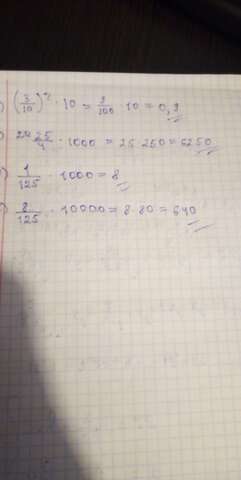 ) (3/10)² · 10 = 9/100 · 10 = 0,9
) 25/4 · 1000 = 25 · 250 = 6250
) 1/125 · 1000 = 8
) 8/125 · 10000 = 8 · 80 = 640